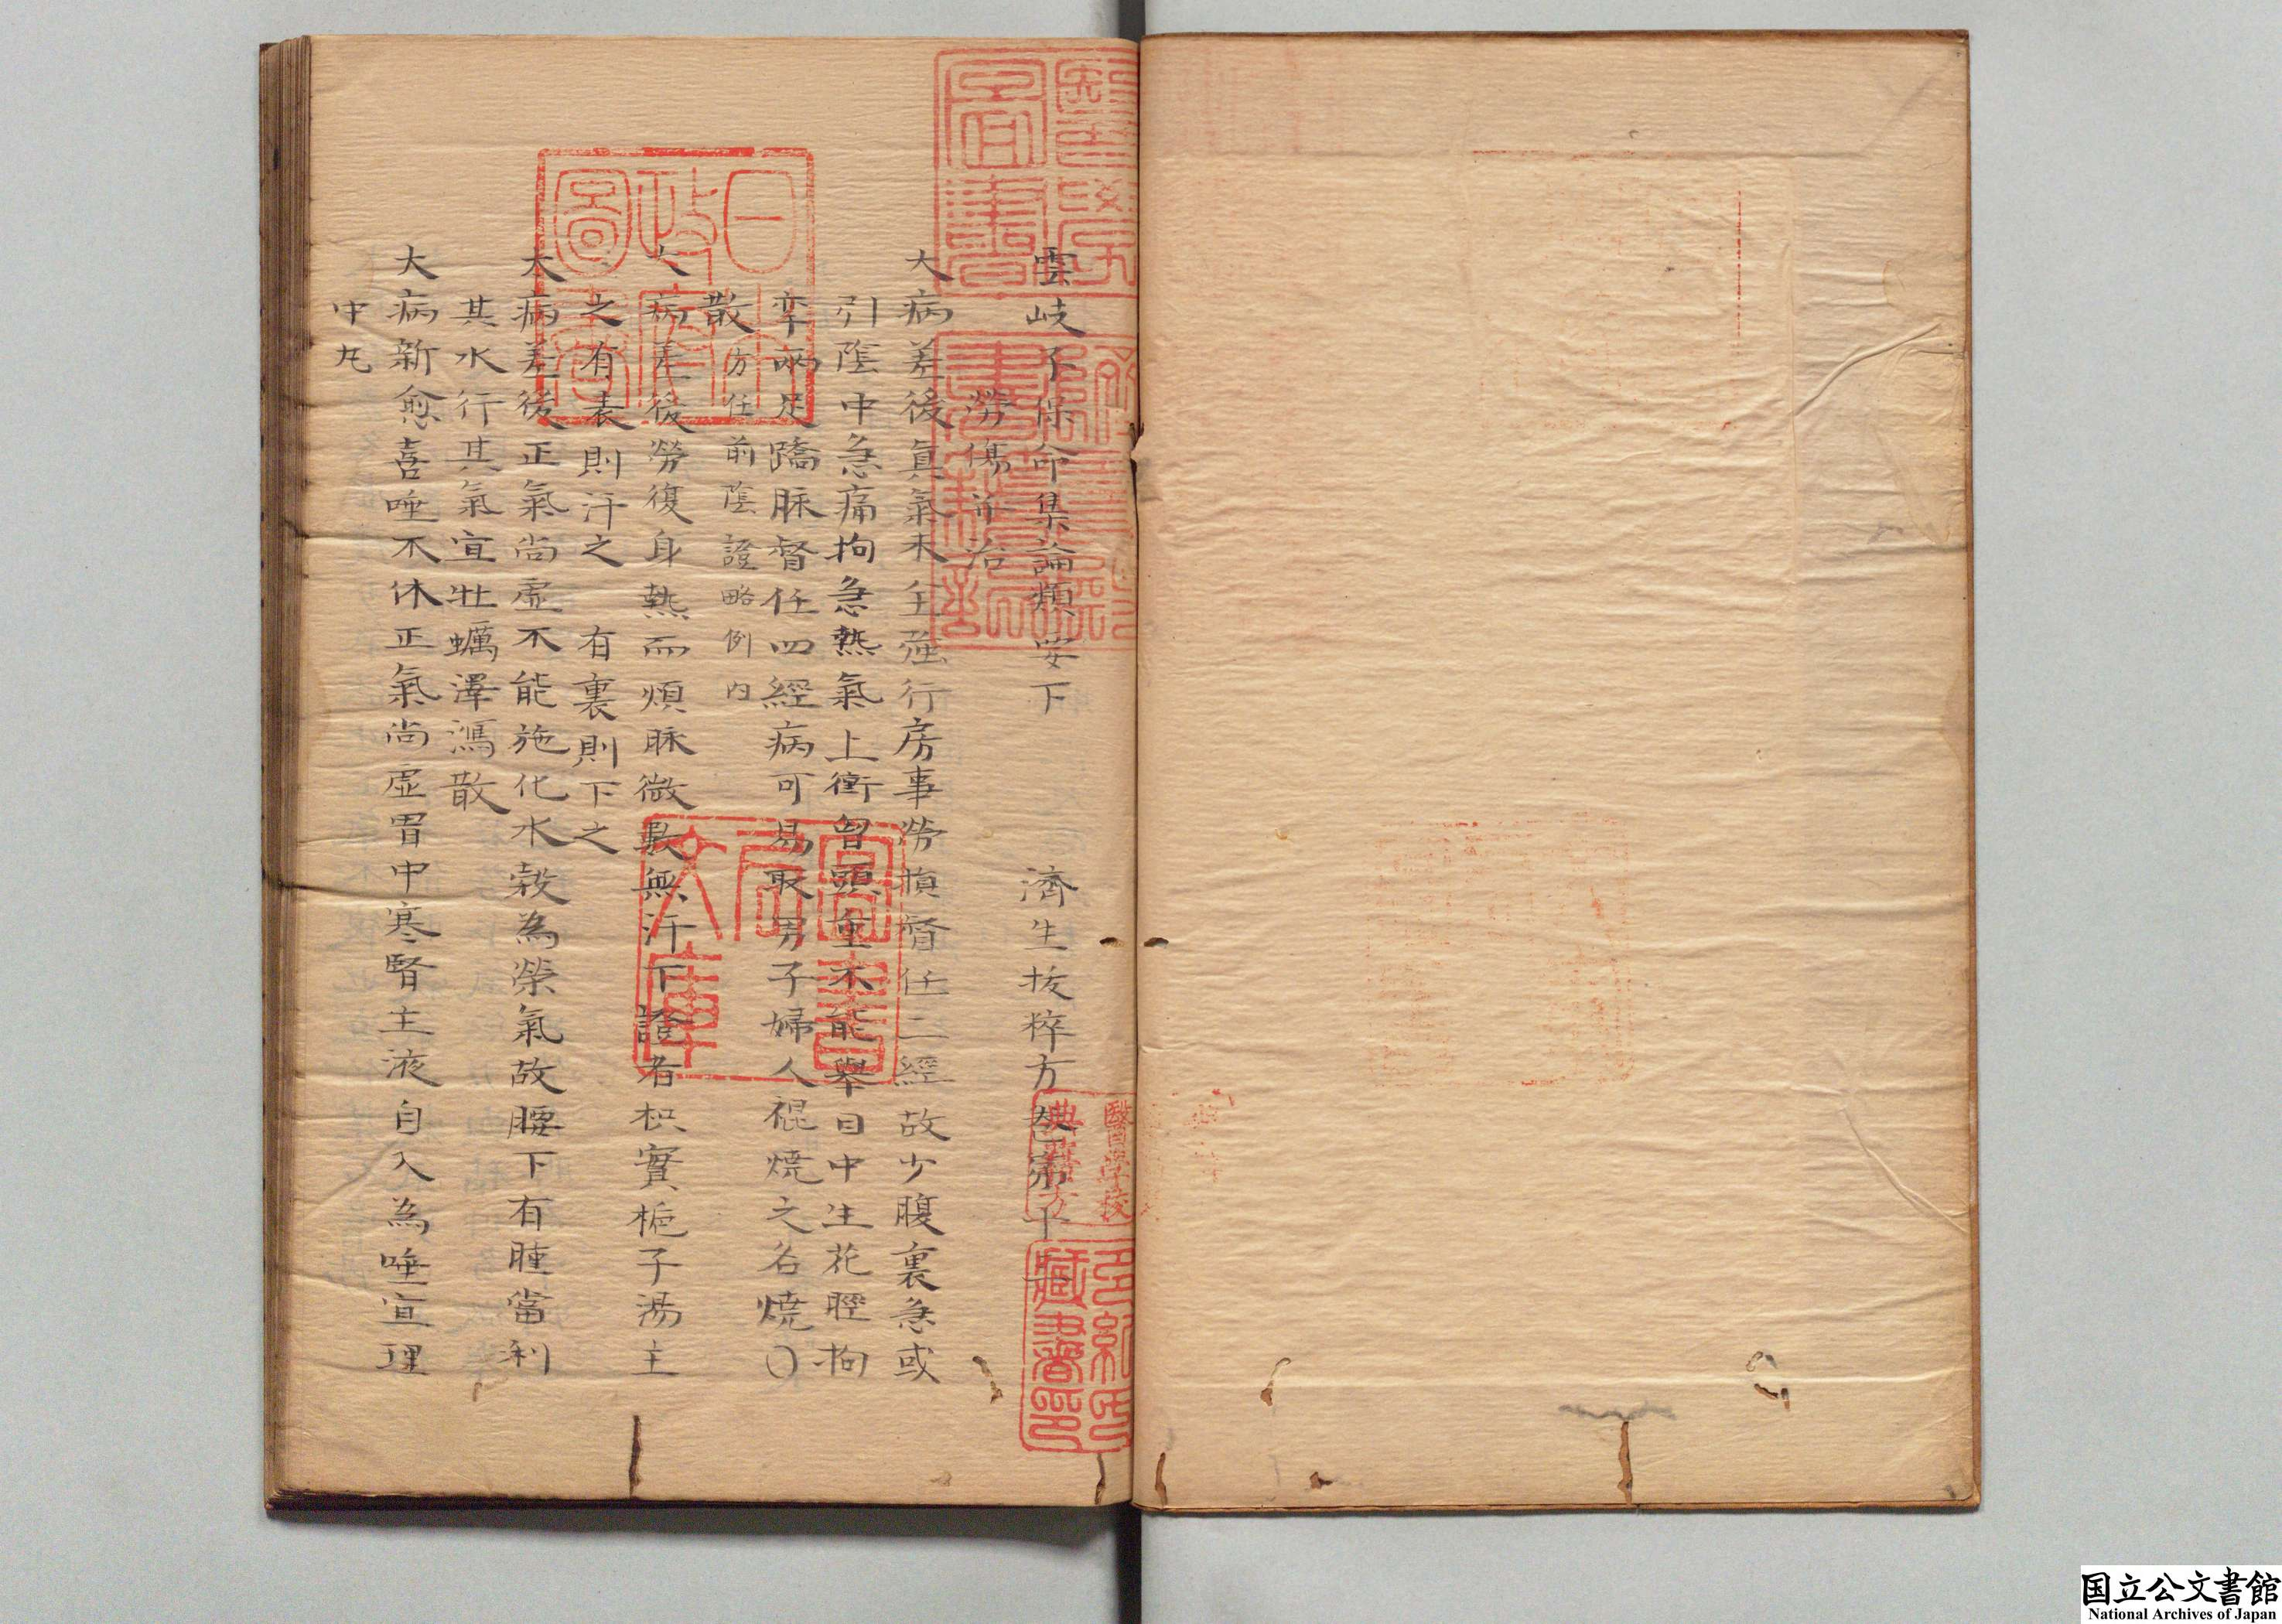 雲岐子保命集論類要下　濟生拔粹方卷第十
勞傷治
大病差後眞氣未全強行房事勞損督任二經故少腹裏急或
引陰中急痛拘急熱氣上衝胷頭重不能舉目中生花脛拘
孿兩足蹻脉督任四經病可易取男子婦人裩燒之名燒○
散方在前陰證略例内
大病差後勞復身熱而煩脉微數無汗下證者枳實梔子湯主
之有表則汗之　有裏則下之
大病差後正氣尚虚不能施化水穀為榮氣故腰下有腫當利
其水行其氣宜牡蠣澤瀉散
大病新愈喜唾不休正氣尚虚胃中寒腎主液自入為唾宜理
中丸
日本政府圖書
醫學圖書
祕閣文庫
醫學校典藥方
多紀氏藏書印
国立公文書館
National Archives of Japan